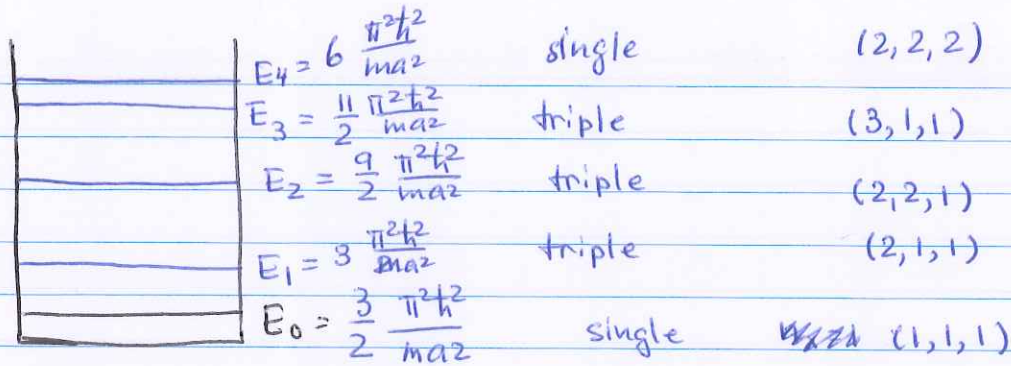 E₄ = 6 π²ħ²/ma² single (2,2,2)
E₃ = 11/2 π²ħ²/ma² triple (3,1,1)
E₂ = 9/2 π²ħ²/ma² triple (2,2,1)
E₁ = 3 π²ħ²/ma² triple (2,1,1)
E₀ = 3/2 π²ħ²/ma² single (1,1,1)